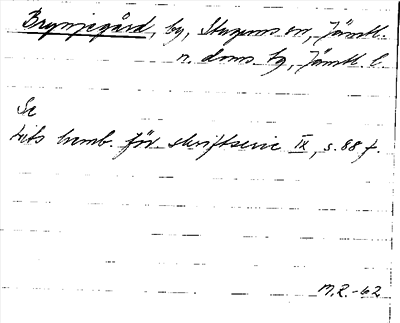 Brynjegård, by, Stuguns sn, Jämtl.
n. doms. by, Jämtl. l.
Se
Lits hemb. för. skriftserie IX, s. 88 f.
M.Z.-62